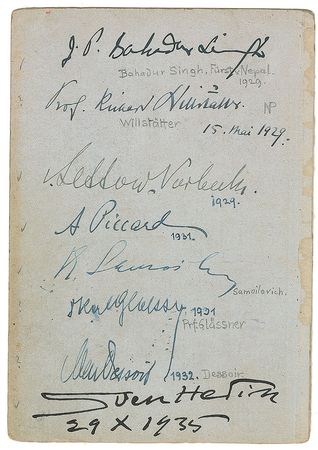 J. P. Bahadur Singh
Bahadur Singh, Fürst v. Nepal.
1929.
Prof. Richard Willstätter NP
Willstätter 15. Mai 1929.
Lettow-Vorbeck.
1929.
A Piccard
1931.
R. Samoilovich
Samoilovich.
1931
Prf. Glässner
Max Dessoir 1932. Dessoir.
Sven Hedin
29 X 1935